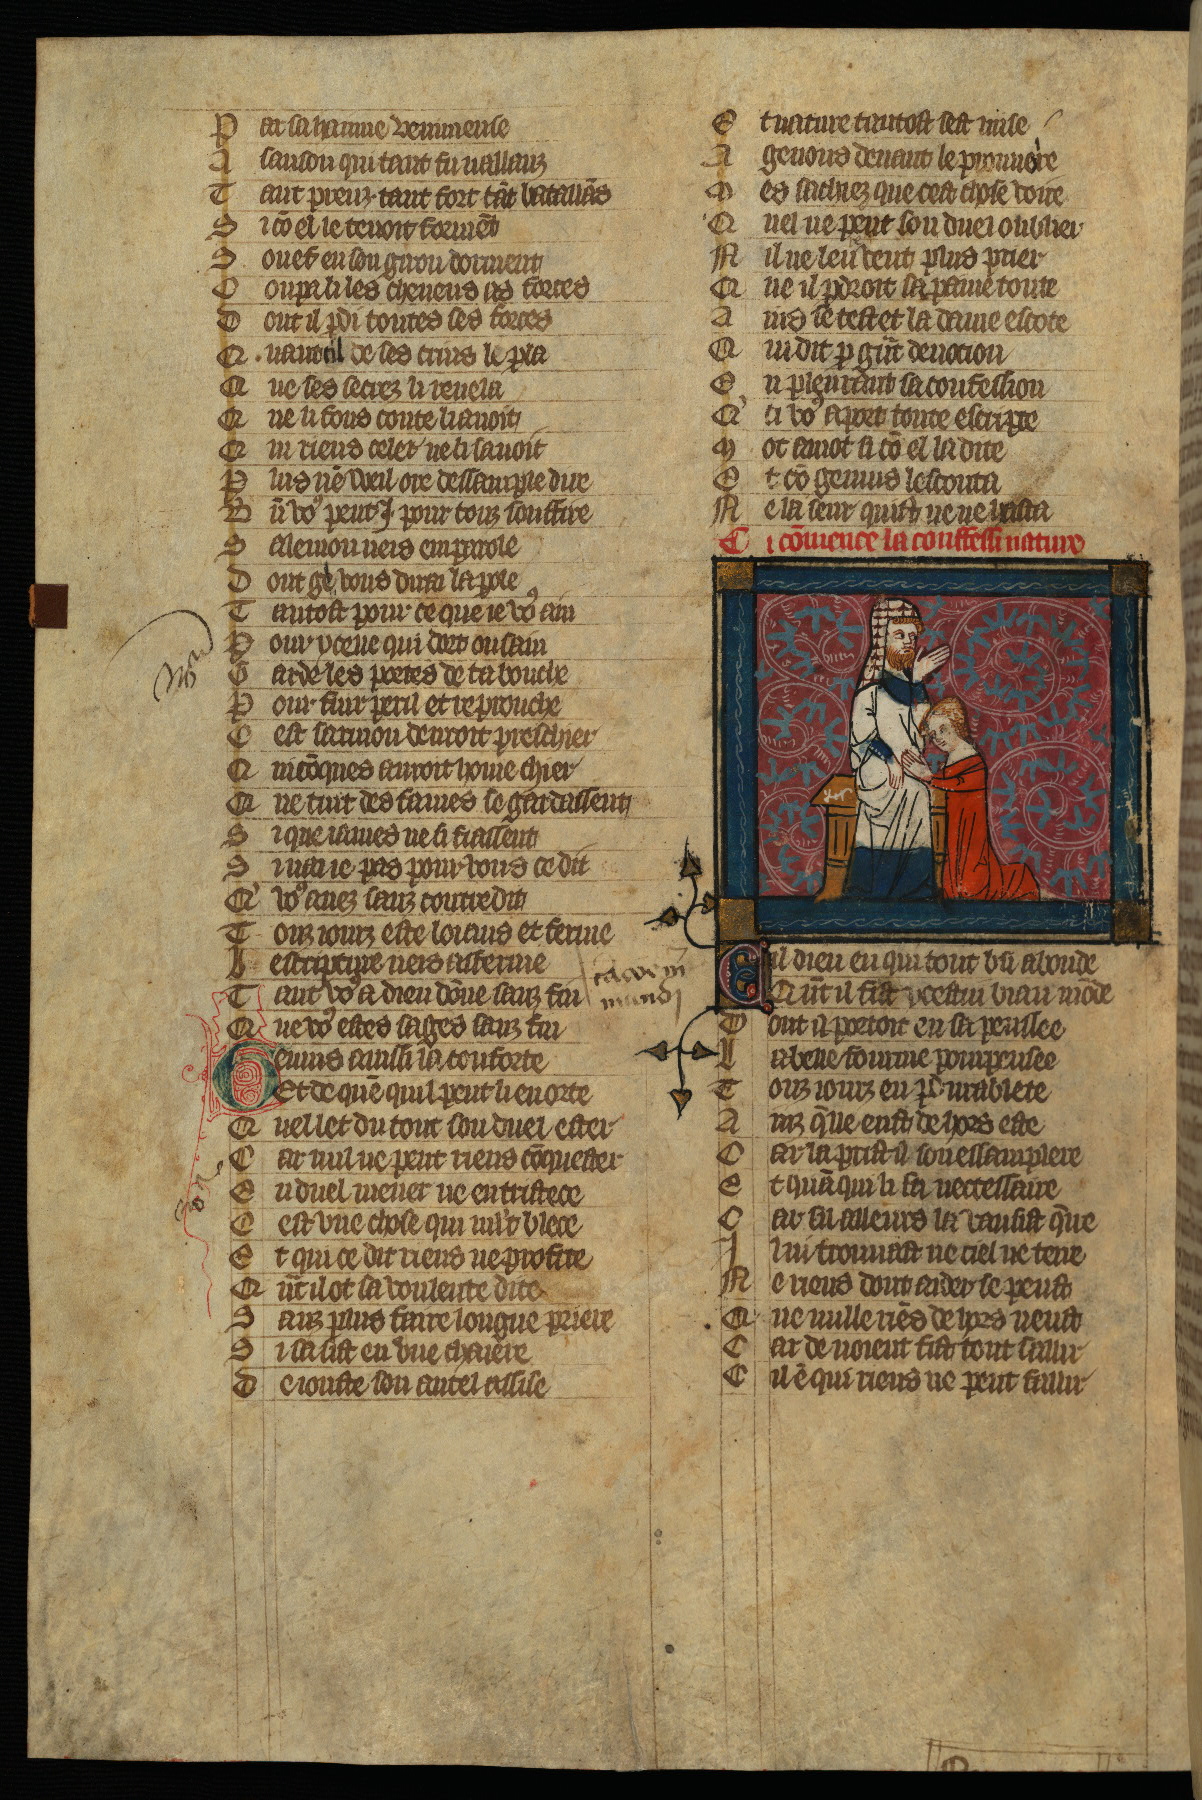 P ar sa hanme venimeuse
A sanson qui tant fu uallanz
T ant preuz tant fort tāt bataillās
S i cō el le tenoit formēt
S ouef en son giron dorment
C oupa li les cheueus as forces
D ont il pdi toutes ses forces
Q uant il de ses crins le pla
Q ue ses secrez li reuela
Q ue li fous conte li auoit
Q ui riens celer ne li sauoit
P lus nē vueil ore dessample dire
B ū voꝰ peut j pour touz souffire
S alemon neis en parole
D ont ge vous dirai la pole
T antost pour ce que ie voꝰ ain
D e ycele qui dort ou sain
G arde les portes de ta bouche
P our fuir peril et reprouche
C est sarmon deuroit preschier
Q uicōques auroit home chier
Q ue tuit des fames se gardassent
S i que iames ne si fiassent
S i nai ie pas pour vous ce dit
Q voꝰ auez sanz contredit
T ouz iourz este loiaus et ferme
L escripture neis afferme
T ant voꝰ a dieu dōne sanz fin
Q ue voꝰ estes sages sanz fin
Genius ainssi la conforte
Et de quē quil peut li enorte
Q uel let du tout son duel ester
C ar nul ne peut riens cōquester
E n duel mener ne en tristece
C est vne chose qui mlt blece
E t qui ce dit riens ne profite
Q ūt il ot sa voulente dite
S anz plus faire longue priere
S i sassist en vne chaiere
D e iouste son autel assise
E t nature tantost sest mise
A genous deuant le prouuoire
M es sachiez que cest chose voire
Q uel ne peut son duel oublier
N il ne len veut plus prier
Q ue il pdroit sa paine toute
A ins se test et la dame escote
Q ui dit p grāt deuocion
E n pleurant sa confession
Q ci voꝰ aport toute escripte
M ot a mot si cō el la dite
E t cō genius lescouta
N e la seur quist ne ne hasta
C i cōmence la conffessi nature
Cil dieu en qui tout bn abonde
Qūt il fist ycestui biau mōde
D ont il portoit en sa penssee
L a bele fourme pourpensee
T ouz iourz en pdurablete
A inz q̄le eust dehors este
C ar la prist il son essamplere
E t quāqui li fu neccessaire
C ar sil ailleurs la vausist q̄re
I l ni trouuast ne ciel ne terre
N e riens dont aider se peust
Q ue nulle riēs dehors neust
C ar de noient fist tout saillir
C il ē qui riens ne peut faillir